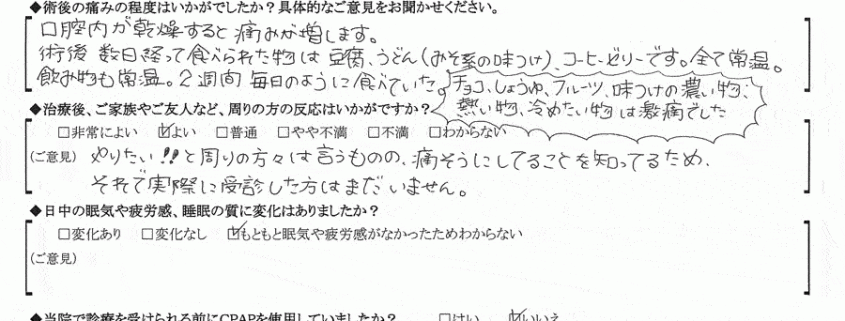 ◆術後の痛みの程度はいかがでしたか？具体的なご意見をお聞かせください。
口腔内が乾燥すると痛みが増します。
術後 数日経って食べられた物は 豆腐、うどん(みそ系の味つけ)、コーヒーゼリーです。全て常温。
飲み物も常温。2週間 毎日のように食べていた。
チョコ、しょうゆ、フルーツ、味つけの濃い物、
熱い物、冷めたい物 は激痛でした
◆治療後、ご家族やご友人など、周りの方の反応はいかがですか？
□非常によい ☑よい □普通 □やや不満 □不満 □わからない
(ご意見) やりたい!!と周りの方々は言うものの、痛そうにしてることを知ってるため、
それで実際に受診した方はまだいません。
◆日中の眠気や疲労感、睡眠の質に変化はありましたか？
□変化あり □変化なし ☑もともと眠気や疲労感がなかったためわからない
(ご意見)
◆当院で診療を受けられる前にCPAPを使用していましたか？ □はい ☑いいえ